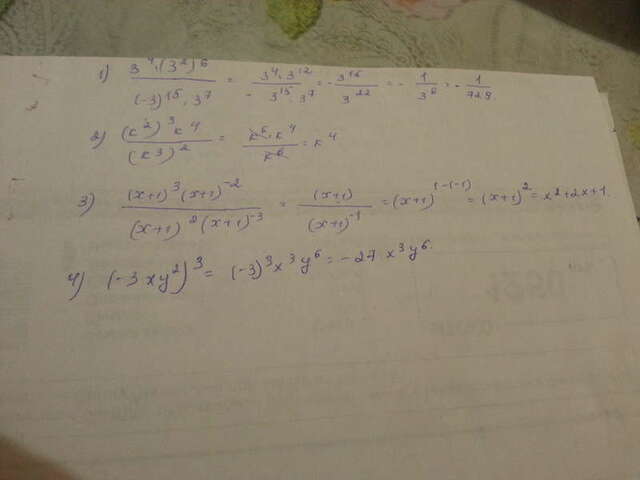 1) 3^4·(3^2)^6 / (-3)^15·3^7 = 3^4·3^12 / -3^15·3^7 = -3^16 / 3^22 = - 1 / 3^6 = - 1 / 729.
2) (k^2)^3 k^4 / (k^3)^2 = k^6·k^4 / k^6 = k^4
3) (x+1)^3 (x+1)^-2 / (x+1)^2 (x+1)^-3 = (x+1) / (x+1)^-1 = (x+1)^1-(-1) = (x+1)^2 = x^2+2x+1.
4) (-3xy^2)^3 = (-3)^3 x^3 y^6 = -27 x^3 y^6.